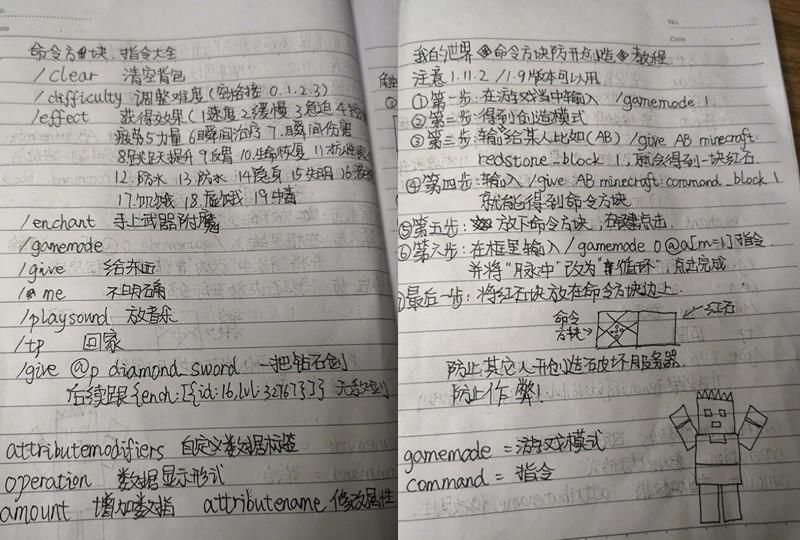 命令方块 指令大全
/clear 清空背包
/difficulty 调整难度(空格接 0.1.2.3)
/effect 获得效果(1速度2缓慢3急迫4
疲劳5力量6瞬间治疗7.瞬间伤害
8跳跃提升9反胃10.生命恢复11抗性
12.防水 13.防水 14隐身15失明16
17.饥饿 18.虚弱 19中毒
/enchant 手上武器附魔
/gamemode
/give 给东西
/me 不明
/playsound 放音乐
/tp 回家
/give @p diamond_sword 一把钻石剑
后续跟{ench:[{id:16,lvl:32767}]} 无敌剑
attributemodifiers 自定义数据标签
operation 数据显示形式
amount 增加数据 attributename 修改属性
No.
Date
我的世界命令方块防开创造教程
注意1.11.2 /1.9版本可以用
①第一步:在游戏当中输入 /gamemode 1
②第二步:得到创造模式
③第三步:输给某人比如(AB) /give AB minecraft:
redstone_block 1,就会得到一块红石.
④第四步:输入/give AB minecraft:command_block 1
就会得到命令方块
⑤第五步:放下命令方块,右键点击.
⑥第六步:在框里输入/gamemode 0 @a[m=1]指令
并将“脉冲”改为“循环”,点击完成
⑦最后一步:将红石块放在命令方块边上.
命令方块→ ←红石
防止其它人开创造破坏服务器.
防止作弊!
gamemode =游戏模式
command = 指令